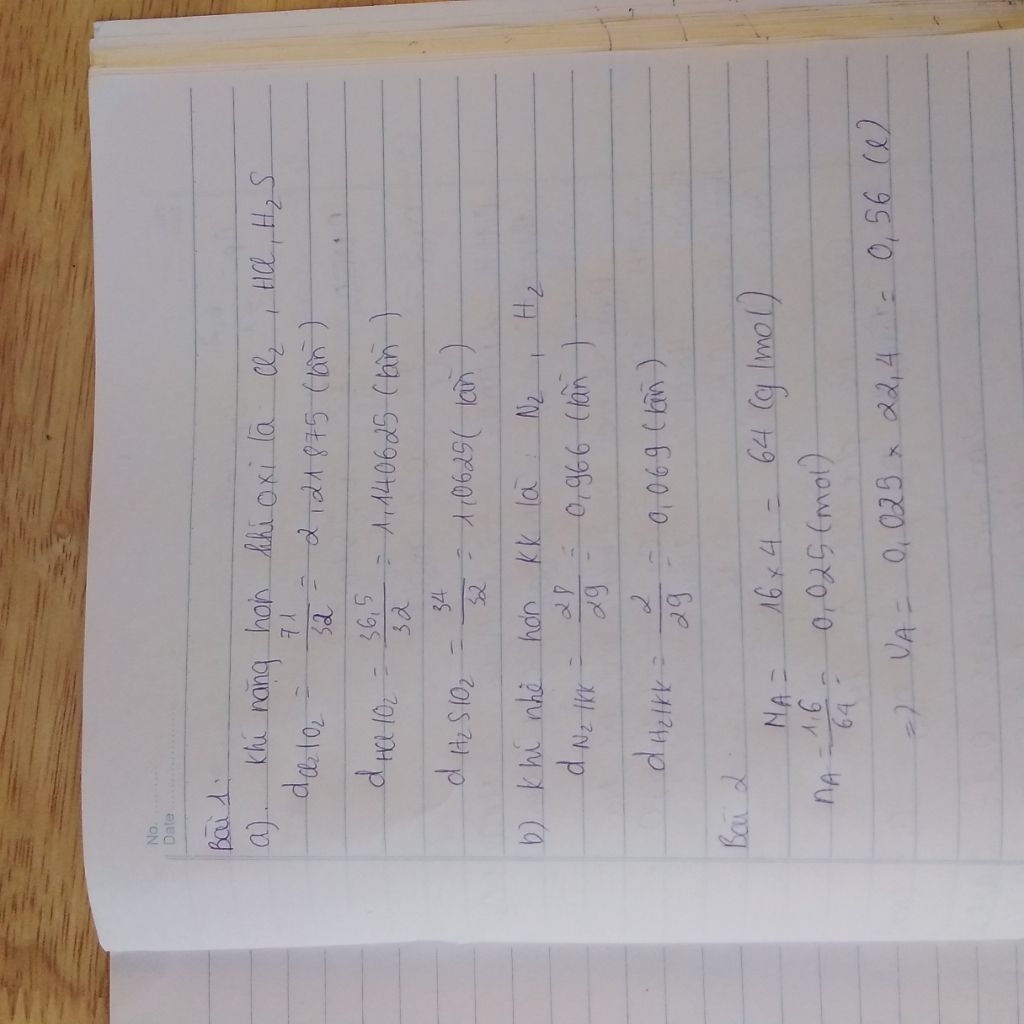 No. ............
Date ............
Bài 1:
a). Khí nặng hơn khí oxi là Cl2, HCl, H2S
dCl2/O2 = 71/32 = 2,21875 (lần)
dHCl/O2 = 36,5/32 = 1,140625 (lần)
dH2S/O2 = 34/32 = 1,0625 (lần)
b) Khí nhẹ hơn KK là: N2, H2
dN2/KK = 28/29 = 0,966 (lần)
dH2/KK = 2/29 = 0,069 (lần)
Bài 2
MA = 16 x 4 = 64 (g/mol)
nA = 1,6/64 = 0,025 (mol)
=> VA = 0,025 x 22,4 = 0,56 (l)